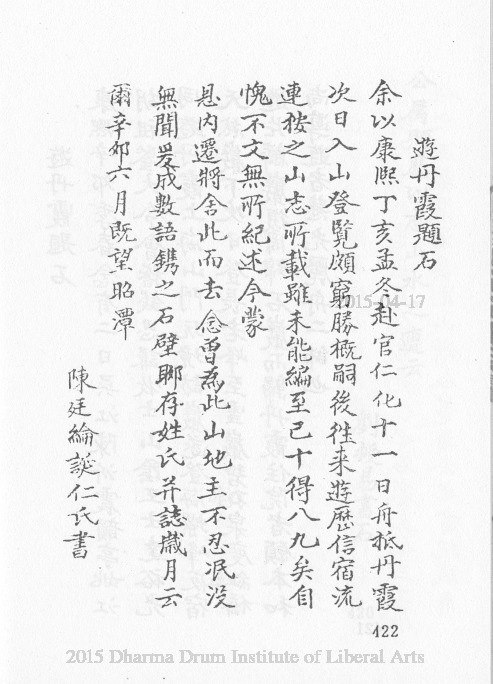 遊丹霞題石
余以康熙丁亥孟冬赴官仁化十一日舟抵丹霞
次日入山登覽頗窮勝概嗣後往来遊歷信宿流
連按之山志所載雖未能編至已十得八九矣自
愧不文無所紀述今蒙
恩内遷將舍此而去念曽為此山地主不忍泯没
無聞爰成數語鐫之石壁聊存姓氏并誌歲月云
爾辛卯六月既望昭潭
陳廷綸誕仁氏書
122
2015-04-17
2015 Dharma Drum Institute of Liberal Arts